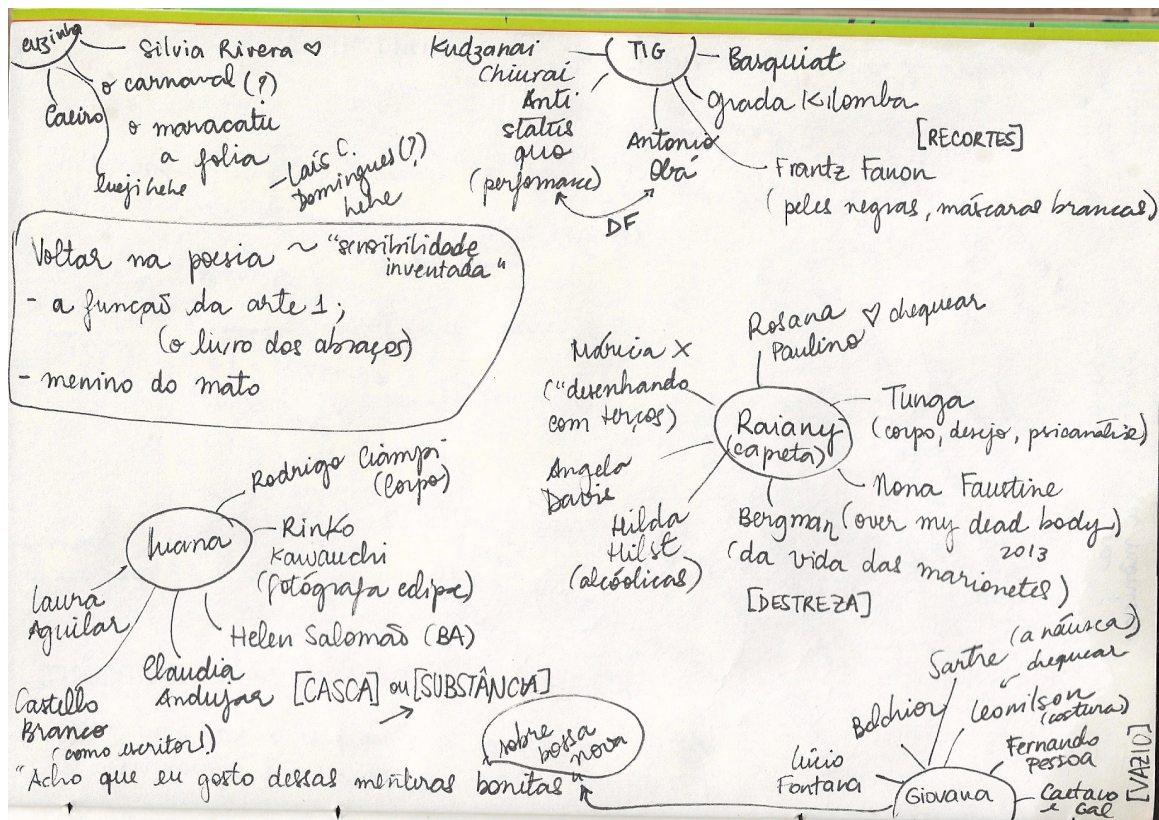 euzinha
Silvia Rivera ♡
o carnaval (?)
Caeiro
o maracatu
a folia
luejihehe
- Laís C.
Domingues (?)
hehe
TIG
Kudzanai
Chiurai
Anti
status
quo
(performance)
Antonio
Obá
DF
Basquiat
Grada Kilomba
[RECORTES]
Frantz Fanon
(peles negras, máscaras brancas)
Voltar na poesia ~ "sensibilidade
inventada"
- a função da arte 1;
(o livro dos abraços)
- menino do mato
Raiany
(capreta)
Rosana
Paulino
♡ chequear
Márcia X
("desenhando
com terços)
Tunga
(corpo, desejo, psicanálise)
Angela
Davis
Nona Faustine
(over my dead body)
2013
Hilda
Hilst
(alcóolicas)
Bergman
(da vida das marionetes)
[DESTREZA]
luana
Rodrigo Ciampi
(corpo)
Rinko
Kawauchi
(fotógrafa eclipse)
Laura
Aguilar
Helen Salomão (BA)
Claudia
Andujar
Castello
Branco
(como escritor!)
[CASCA] ou [SUBSTÂNCIA]
sobre
bossa
nova
"Acho que eu gosto dessas mentiras bonitas"
Giovana
Sartre (a náusea)
chequear
Belchior
Leonilson
(costura)
Lúcio
Fontana
Fernando
Pessoa
Caetano
e Gal
[VAZIO]